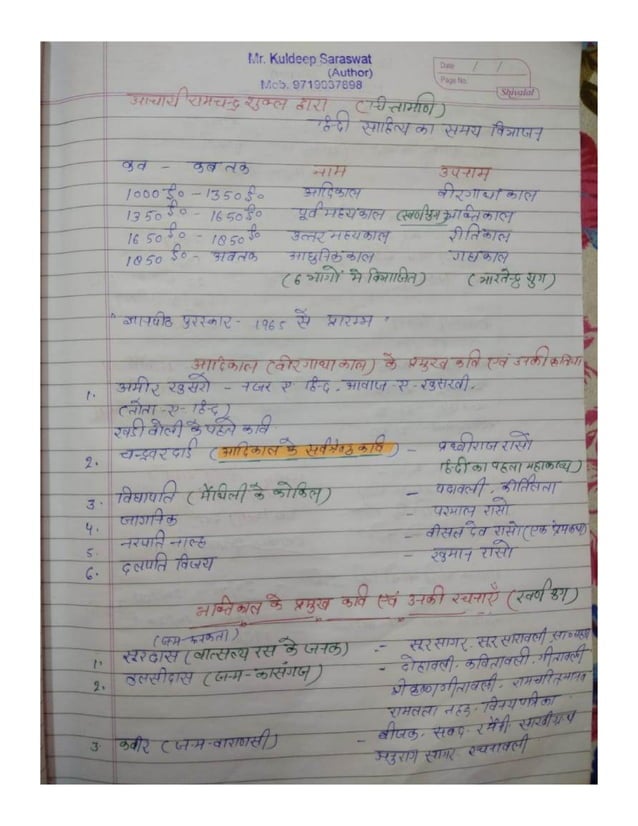 Mr. Kuldeep Saraswat
(Author)
Mob. 9719037898
Date / /
Page No.
Shivalal
आचार्य रामचन्द्र शुक्ल द्वारा (चिंतामणि)
हिंदी साहित्य का समय विभाजन
कब - कब तक नाम उपनाम
1000 ई० - 1350 ई० आदिकाल वीरगाथा काल
1350 ई० - 1650 ई० पूर्व मध्यकाल (स्वर्णयुग) भक्तिकाल
1650 ई० - 1850 ई० उत्तर मध्यकाल रीतिकाल
1850 ई० - अबतक आधुनिक काल गद्यकाल
(6 भागों में विभाजित) (भारतेन्दु युग)
"ज्ञानपीठ पुरस्कार - 1965 से प्रारम्भ"
आदिकाल (वीरगाथा काल) के प्रमुख कवि एवं उनकी
1. अमीर खुसरो - नजर ए हिन्द, आवाज-ए-खुसरवी,
(तोता-ए-हिन्द)
खडी बोली के पहले कवि
2. चन्द्रवरदाई (आदिकाल के सर्वश्रेष्ठ कवि) - प्रथ्वीराज रासो
हिंदी का पहला महाकाव्य)
3. विद्यापति (मैथिली के कोकिल) - पदावली, कीर्तिलता
4. जागनिक - परमाल रासो
5. नरपति नाल्ह - वीसल देव रासो (एक प्रेमकाव्य)
6. दलपति विजय - खुमान रासो
भक्तिकाल के प्रमुख कवि एवं उनकी रचनाएँ (स्वर्ण युग)
(जन्म-रुनकता)
1. सूरदास (वात्सल्य रस के जनक) - सूरसागर, सूर सारावली,
2. तुलसीदास (जन्म-कासगंज) - दोहावली, कवितावली, गीतावली
श्री कृष्णगीतावली, रामचरितमानस
रामलला नहछू, विनयपत्रिका
3. कबीर (जन्म-वाराणसी) - बीजक, सबद, रमैनी
अनुराग सागर,